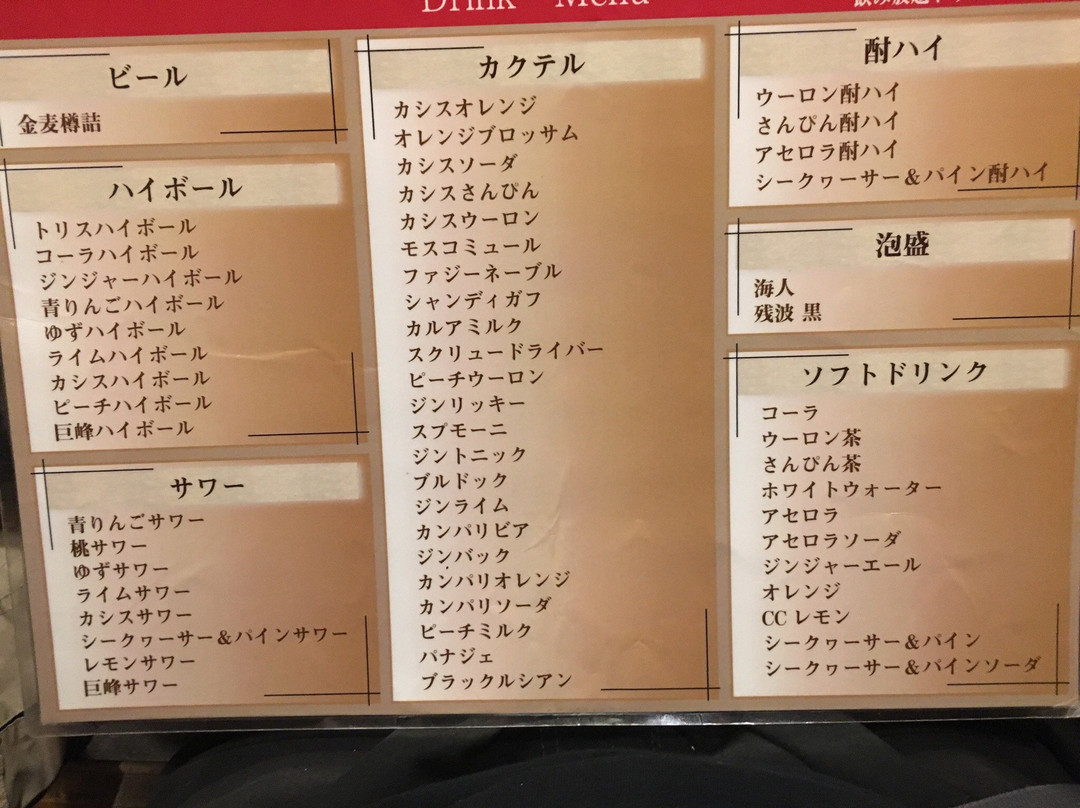 Drink Menu
ビール
金麦樽詰
ハイボール
トリスハイボール
コーラハイボール
ジンジャーハイボール
青りんごハイボール
ゆずハイボール
ライムハイボール
カシスハイボール
ピーチハイボール
巨峰ハイボール
サワー
青りんごサワー
桃サワー
ゆずサワー
ライムサワー
カシスサワー
シークヮーサー＆パインサワー
レモンサワー
巨峰サワー
カクテル
カシスオレンジ
オレンジブロッサム
カシスソーダ
カシスさんぴん
カシスウーロン
モスコミュール
ファジーネーブル
シャンディガフ
カルアミルク
スクリュードライバー
ピーチウーロン
ジンリッキー
スプモーニ
ジントニック
ブルドック
ジンライム
カンパリビア
ジンバック
カンパリオレンジ
カンパリソーダ
ピーチミルク
パナジェ
ブラックルシアン
酎ハイ
ウーロン酎ハイ
さんぴん酎ハイ
アセロラ酎ハイ
シークヮーサー＆パイン酎ハイ
泡盛
海人
残波 黒
ソフトドリンク
コーラ
ウーロン茶
さんぴん茶
ホワイトウォーター
アセロラ
アセロラソーダ
ジンジャーエール
オレンジ
CC レモン
シークヮーサー＆パイン
シークヮーサー＆パインソーダ